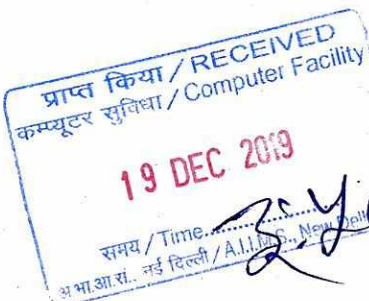 प्राप्त किया / RECEIVED
कम्प्यूटर सुविधा / Computer Facility
19 DEC 2019
समय / Time..............
अ.भा.आ.सं., नई दिल्ली / A.I.I.M.S., New Delhi